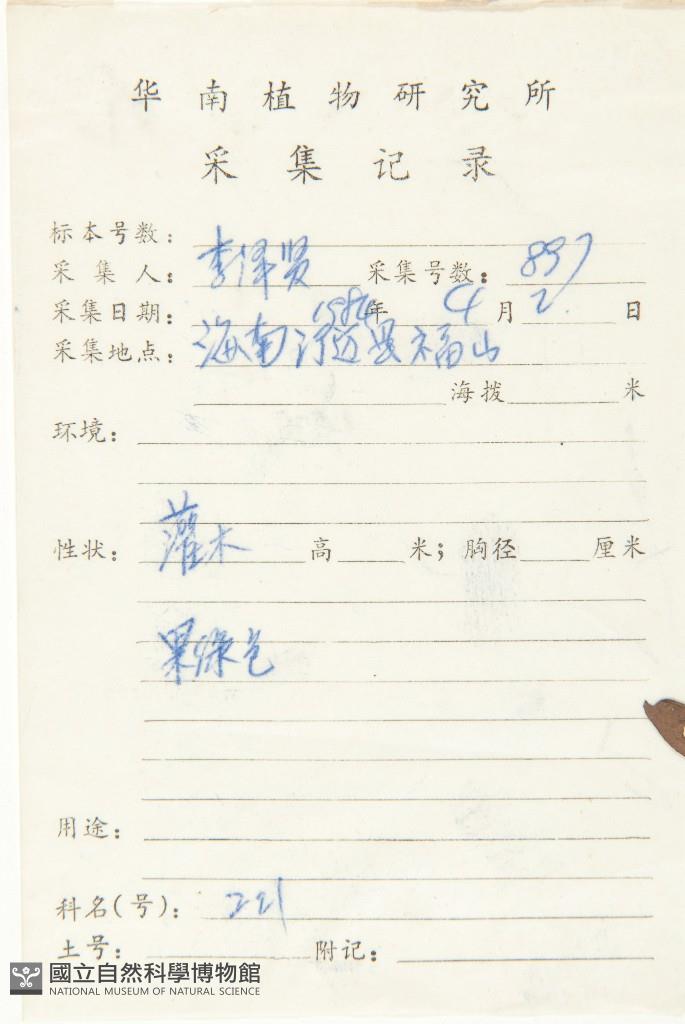 华南植物研究所
采集记录
标本号数：
采集人：李泽贤 采集号数：897
采集日期：1984年4月2日
采集地点：海南澄迈县福山
海拨 米
环境：
性状：灌木 高 米；胸径 厘米
果绿色
用途：
科名(号)：221
土号： 附记：
國立自然科學博物館
NATIONAL MUSEUM OF NATURAL SCIENCE